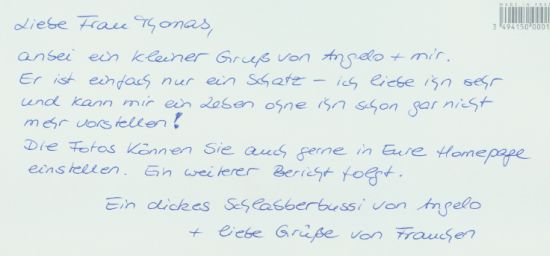 MADE IN FRA
3 494150 0001
Liebe Frau Thomas,
anbei ein kleiner Gruß von Angelo + mir.
Er ist einfach nur ein Schatz – ich liebe ihn sehr
und kann mir ein Leben ohne ihn schon gar nicht
mehr vorstellen!
Die Fotos können Sie auch gerne in Eure Homepage
einstellen. Ein weiterer Bericht folgt.
Ein dickes Schlabberbussi von Angelo
+ liebe Grüße von Frauchen